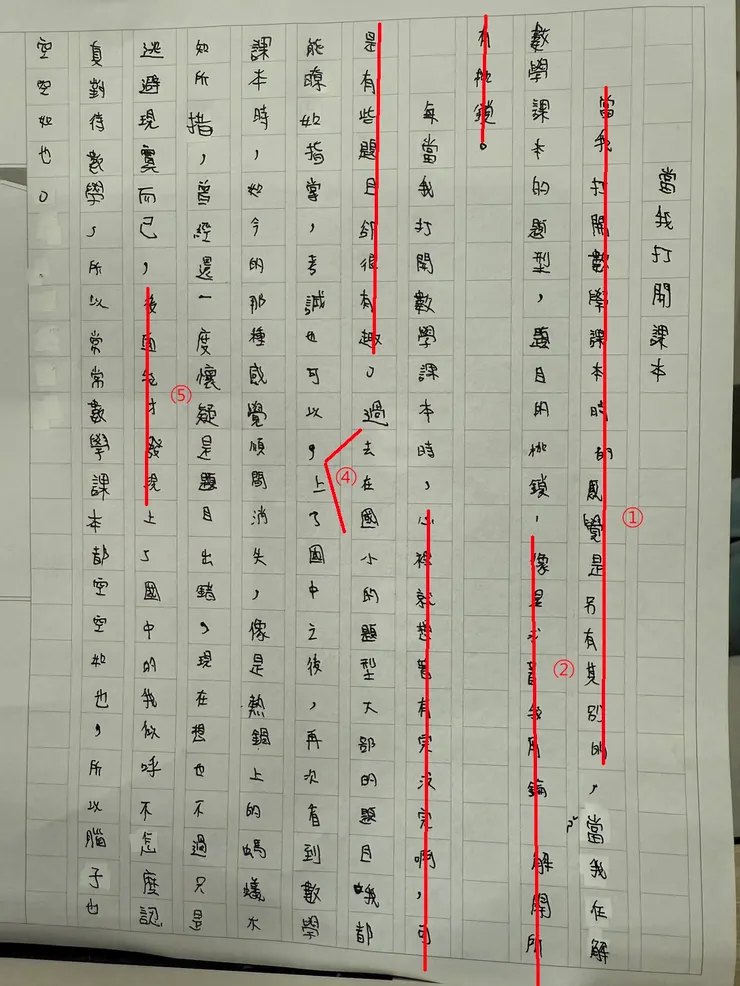 當我打開課本
當我打開數學課本時的感覺是另有其別的,當我在解
數學課本的題型,題目的枷鎖,像是求著我用鑰 解開所
有枷鎖。
每當我打開數學課本時,心裡就想著有完沒完啊,可
是有些題目卻很有趣。過去在國小的題型大部的題目我都
能瞭如指掌,考試也可以,上了國中之後,再次看到數學
課本時,如今的那種感覺順間消失,像是熱鍋上的螞蟻不
知所措,曾經還一度懷疑是題目出錯,現在想也不過只是
逃避現實而已,後面我才發現上了國中的我似呼不怎麼認
真對待數學,所以常常數學課本都空空如也,所以腦子也
空空如也。
①
②
④
⑤